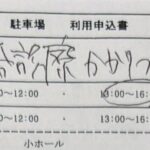 駐車場　利用申込書
診療 かかりつ
0～12:00 ・ 13:00～16:
0～12:00 ・ 13:00～16:
小ホール